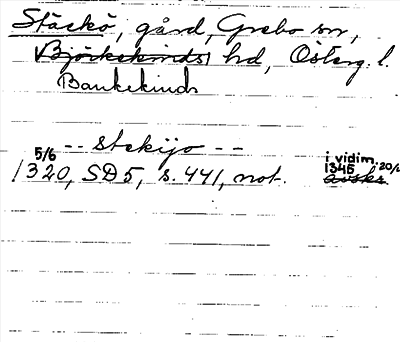 Stäckö, gård, Grebo sn,
Björkekinds hd, Österg. l.
Bankekinds
-- stekijo --
5/6 i vidim.
1320, SD 5, s. 441, not. 1345 20/6
avskr.